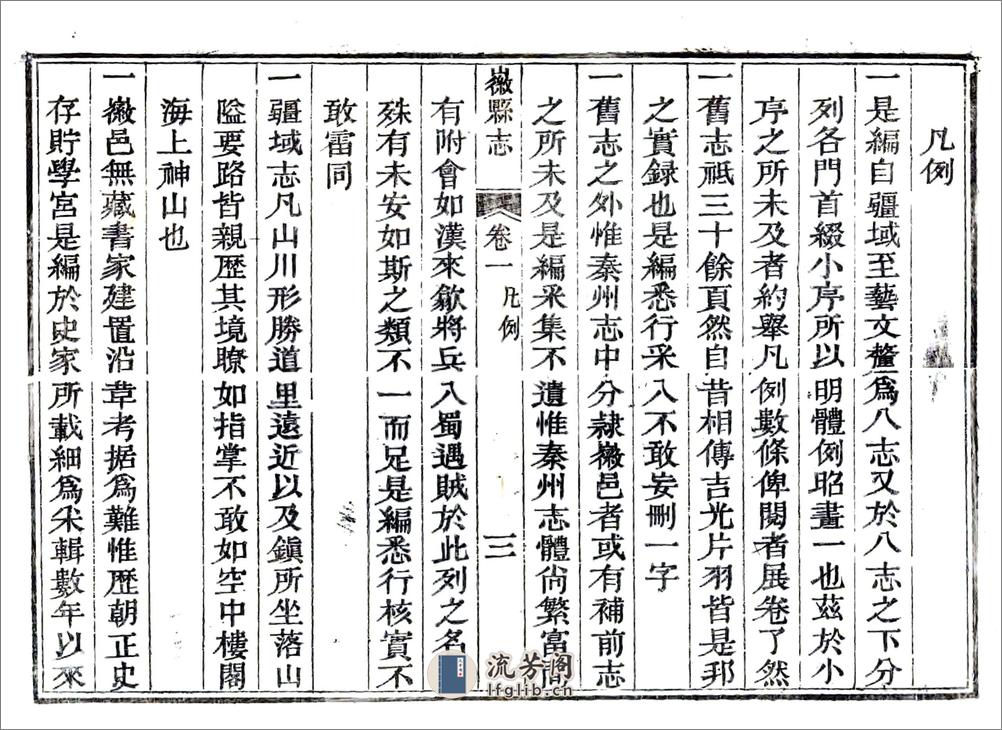 凡例
一是編自疆域至藝文釐爲八志又於八志之下分
列各門首綴小序所以明體例昭畫一也茲於小
序之所未及者約舉凡例數條俾閱者展卷了然
一舊志祗三十餘頁然自昔相傳吉光片羽皆是邦
之實録也是編悉行采入不敢妄刪一字
一舊志之外惟秦州志中分隸徽邑者或有補前志
之所未及是編采集不遺惟秦州志體尚繁富間
徽縣志 卷一 凡例 三
有附會如漢來歙將兵入蜀遇賊於此列之名
殊有未安如斯之類不一而足是編悉行核實不
敢雷同
一疆域志凡山川形勝道里遠近以及鎭所坐落山
隘要路皆親歷其境瞭如指掌不敢如空中樓閣
海上神山也
一徽邑無藏書家建置沿革考据爲難惟歷朝正史
存貯學宮是編於史家所載細爲采輯數年以來
流芳閣
lfglib.cn